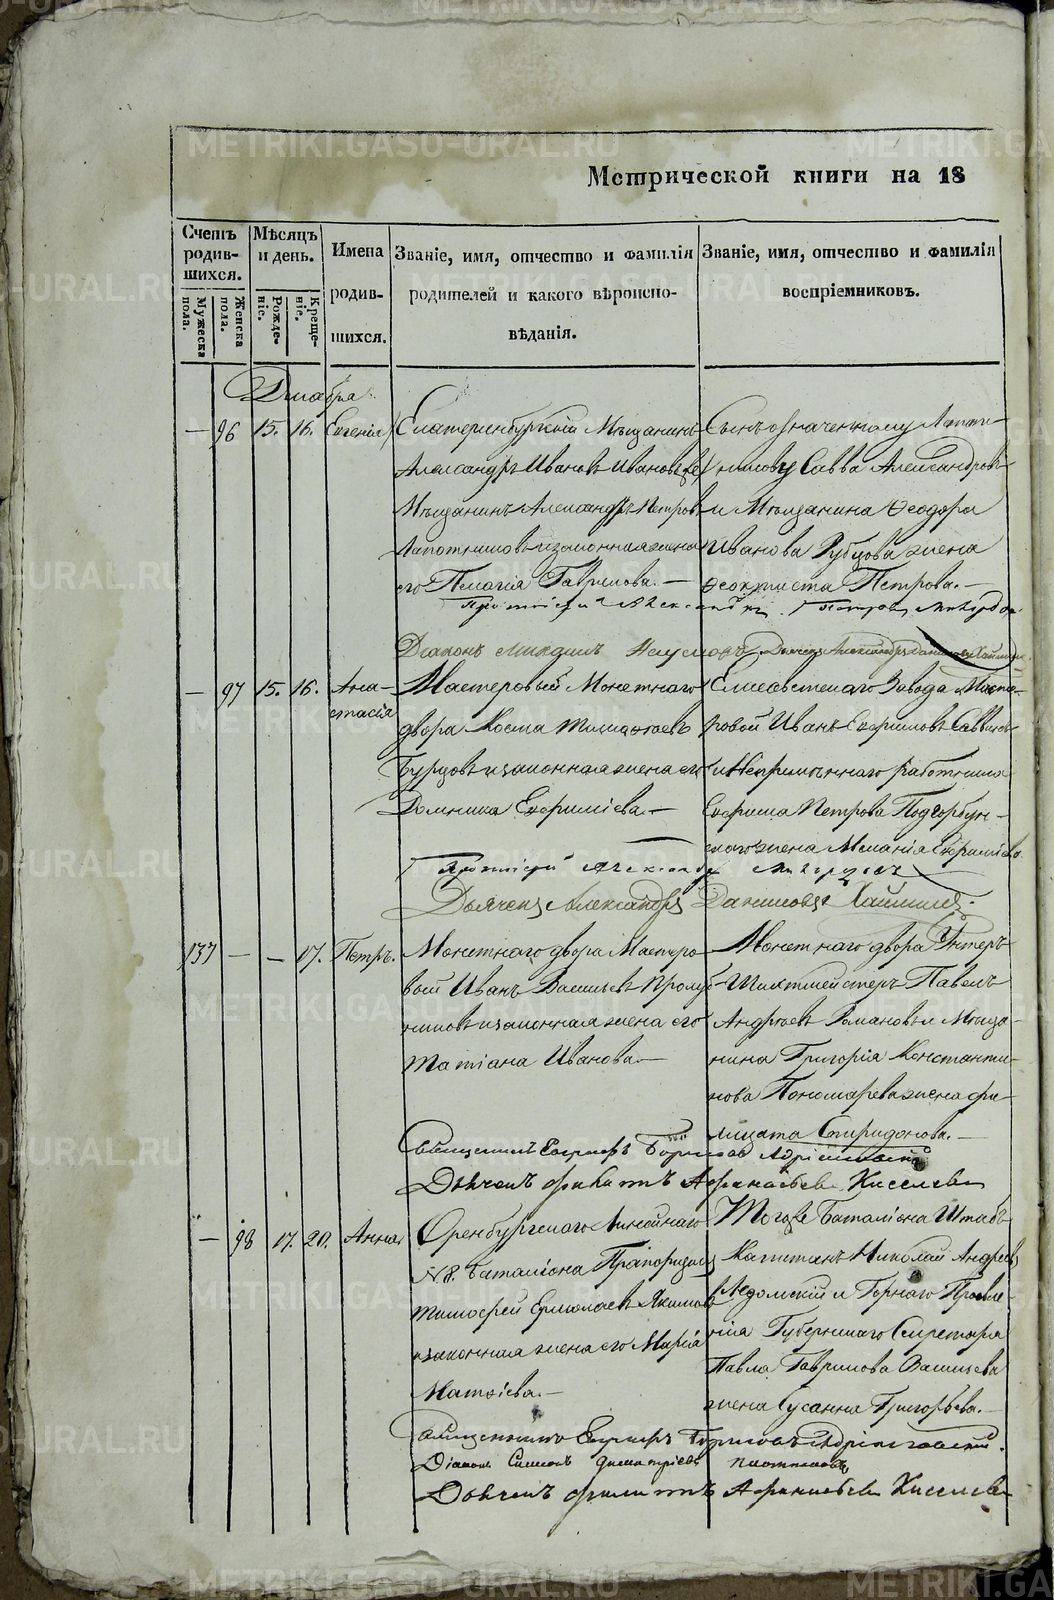 METRIKI.GASO-URAL.RU
Метрической книги на 18
Счетъ родив-шихся.
Мужеска пола.
Женска пола.
Мѣсяцъ и день.
Рожде-ніе.
Креще-ніе.
Имена
родив-
шихся.
Званіе, имя, отчество и фамилія
родителей и какого вѣроиспо-
вѣданія.
Званіе, имя, отчество и фамилія
воспріемниковъ.
Декабра
— 96 15. 16. Евгенія
Екатеринбургскій Мѣщанинъ
Александръ Ивановъ
Мѣщанинъ Александръ Петровъ
Лапотниковъ и законная жена
его Пелагія Гаврилова. —
Сынъ означенному Лапот-
никову Савва Александровъ
и Мѣщанина Ѳеодора
Иванова Рубцова жена
Ѳеоктиста Петрова. —
Протоіерей Александръ
Діаконъ Михаилъ Наумовъ
Дьячекъ Александръ Даниловъ
— 97 15. 16. Ана-
стасія
Мастеровый Монетнаго
двора Косма Тимоѳеевъ
Бурцовъ и законная жена его
Домника Ефиміева. —
Елисаветскаго Завода Масте-
ровой Иванъ Ефимовъ
и Непремѣннаго работника
Ефима Петрова Подгорбун-
скаго жена Меланія Ефиміева
Протоіерей Александръ
Дьячекъ Александръ Даниловъ
137 — — 17. Петръ.
Монетнаго двора Мастеро-
вый Иванъ Васильевъ
и законная жена его
Татіана Иванова. —
Монетнаго двора Унтеръ
Шихтмейстеръ Павелъ
Андреевъ Романовъ и Мѣща-
нина Григорія Константи-
нова Пономарева жена Фи-
лицата Спиридонова. —
Священникъ Евграфъ Борисовъ Адріановскій
Дьячекъ Филиппъ Афанасьевъ Киселевъ
— 98 17. 20. Анна
Оренбургскаго Линейнаго
№ 8. Баталіона Прапорщикъ
Тимофей Ермолаевъ Якимовъ
и законная жена его Марія
Матвіева. —
Тогоже Баталіона Штабъ
Капитанъ Николай Андреевъ
и Горнаго Правле-
нія Губернскаго Секретаря
Павла Гаврилова Васильева
жена Сусанна Григорьева. —
Священникъ Евграфъ Борисовъ Адріановскій.
Діаконъ Симеонъ Димитріевъ
Дьячекъ Филиппъ Афанасьевъ Киселевъ